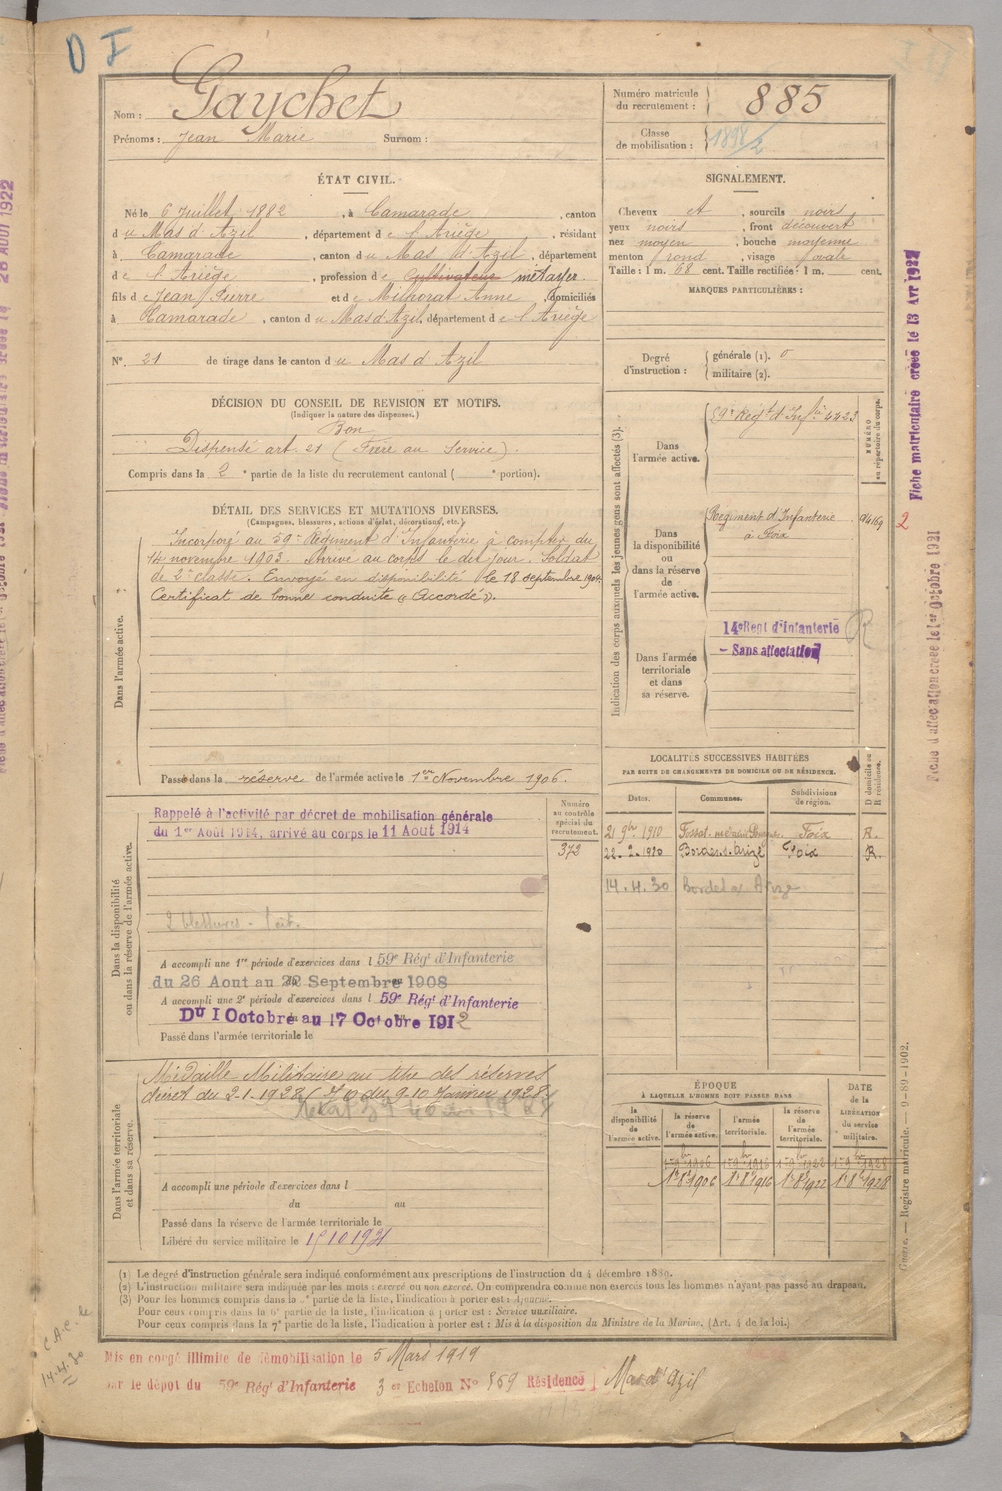 D F
Nom : Gaychet
Prénoms : Jean Marie Surnom :
Numéro matricule du recrutement : 885
Classe de mobilisation :
ÉTAT CIVIL.
Né le 6 Juillet 1882, à Camarade, canton
du Mas d'Azil, département de l'Ariège, résidant
à Camarade, canton du Mas d'Azil, département
de l'Ariège, profession de Cultivateur métayer
fils de Jean Pierre et de Milhorat Anne, domiciliés
à Camarade, canton du Mas d'Azil, département de l'Ariège
N° 21 de tirage dans le canton du Mas d'Azil
SIGNALEMENT.
Cheveux et, sourcils noirs
yeux noirs, front découvert
nez moyen, bouche moyenne
menton rond, visage ovale
Taille : 1 m. 68 cent. Taille rectifiée : 1 m. cent.
MARQUES PARTICULIÈRES :
Degré d'instruction : générale (1). 0
militaire (2).
DÉCISION DU CONSEIL DE REVISION ET MOTIFS.
(Indiquer la nature des dispenses.)
Bon
Dispensé art. 21 (Frère au Service)
Compris dans la 2e partie de la liste du recrutement cantonal ( e portion).
DÉTAIL DES SERVICES ET MUTATIONS DIVERSES.
(Campagnes, blessures, actions d'éclat, décorations, etc.)
Dans l'armée active.
Incorporé au 59e Régiment d'Infanterie à compter du
14 novembre 1903. Arrivé au corps le dit jour. Soldat
de 2e classe. Envoyé en disponibilité le 18 septembre 1904.
Certificat de bonne conduite « Accordé ».
Passé dans la réserve de l'armée active le 1er Novembre 1906.
Indication des corps auxquels les jeunes gens sont affectés (3).
NUMÉRO au répertoire du corps.
Dans l'armée active.
59e Régt d'Infie 4423
Dans la disponibilité ou dans la réserve de l'armée active.
Régiment d'Infanterie
à Foix
Dans l'armée territoriale et dans sa réserve.
14e Regt d'Infanterie
- Sans affectation
R
Fiche matriculaire créée le 13 Avr 1922
2
Fiche d'affectation créée le 1er Octobre 1921
LOCALITÉS SUCCESSIVES HABITÉES
PAR SUITE DE CHANGEMENTS DE DOMICILE OU DE RÉSIDENCE.
Dates. Communes. Subdivisions de région. D domicile ou R résidence.
21 9bre 1910 Foix R.
22. 2. 1920 Bordes s. Arize Foix R.
14. 4. 30
Dans la disponibilité ou dans la réserve de l'armée active.
Numéro au contrôle spécial du recrutement.
372
Rappelé à l'activité par décret de mobilisation générale
du 1er Août 1914, arrivé au corps le 11 Aout 1914
2 blessures.
A accompli une 1re période d'exercices dans l 59e Régt d'Infanterie
du 26 Aout au Septembre 1908
A accompli une 2e période d'exercices dans l 59e Régt d'Infanterie
Du 1 Octobre au 17 Octobre 1912
Passé dans l'armée territoriale le
Dans l'armée territoriale et dans sa réserve.
Médaille Militaire au titre des réserves
décret du 2-1-1928 (J.O du 9-10 Janvier 1928)
A accompli une période d'exercices dans l
du au
Passé dans la réserve de l'armée territoriale le
Libéré du service militaire le
ÉPOQUE
À LAQUELLE L'HOMME DOIT PASSER DANS
DATE de la LIBÉRATION du service militaire.
la disponibilité de l'armée active. la réserve de l'armée active. l'armée territoriale. la réserve de l'armée territoriale.
1er 9bre 1906 1er 9bre 1916 1er 9bre 1922 1er 9bre 1928
1er 8bre 1906 1er 8bre 1916 1er 8bre 1922 1er 8bre 1928
Guerre. — Registre matricule. — 9-89-1902.
(1) Le degré d'instruction générale sera indiqué conformément aux prescriptions de l'instruction du 4 décembre 1889.
(2) L'instruction militaire sera indiquée par les mots : exercé ou non exercé. On comprendra comme non exercés tous les hommes n'ayant pas passé au drapeau.
(3) Pour les hommes compris dans la partie de la liste, l'indication à porter est : Ajourné.
Pour ceux compris dans la 6e partie de la liste, l'indication à porter est : Service auxiliaire.
Pour ceux compris dans la 7e partie de la liste, l'indication à porter est : Mis à la disposition du Ministre de la Marine. (Art. 4 de la loi.)
14.4.30
Mis en congé illimité de démobilisation le 5 Mars 1919
par le dépôt du 59e Régt d'Infanterie 3e Echelon N° 859 Résidence Mas d'Azil